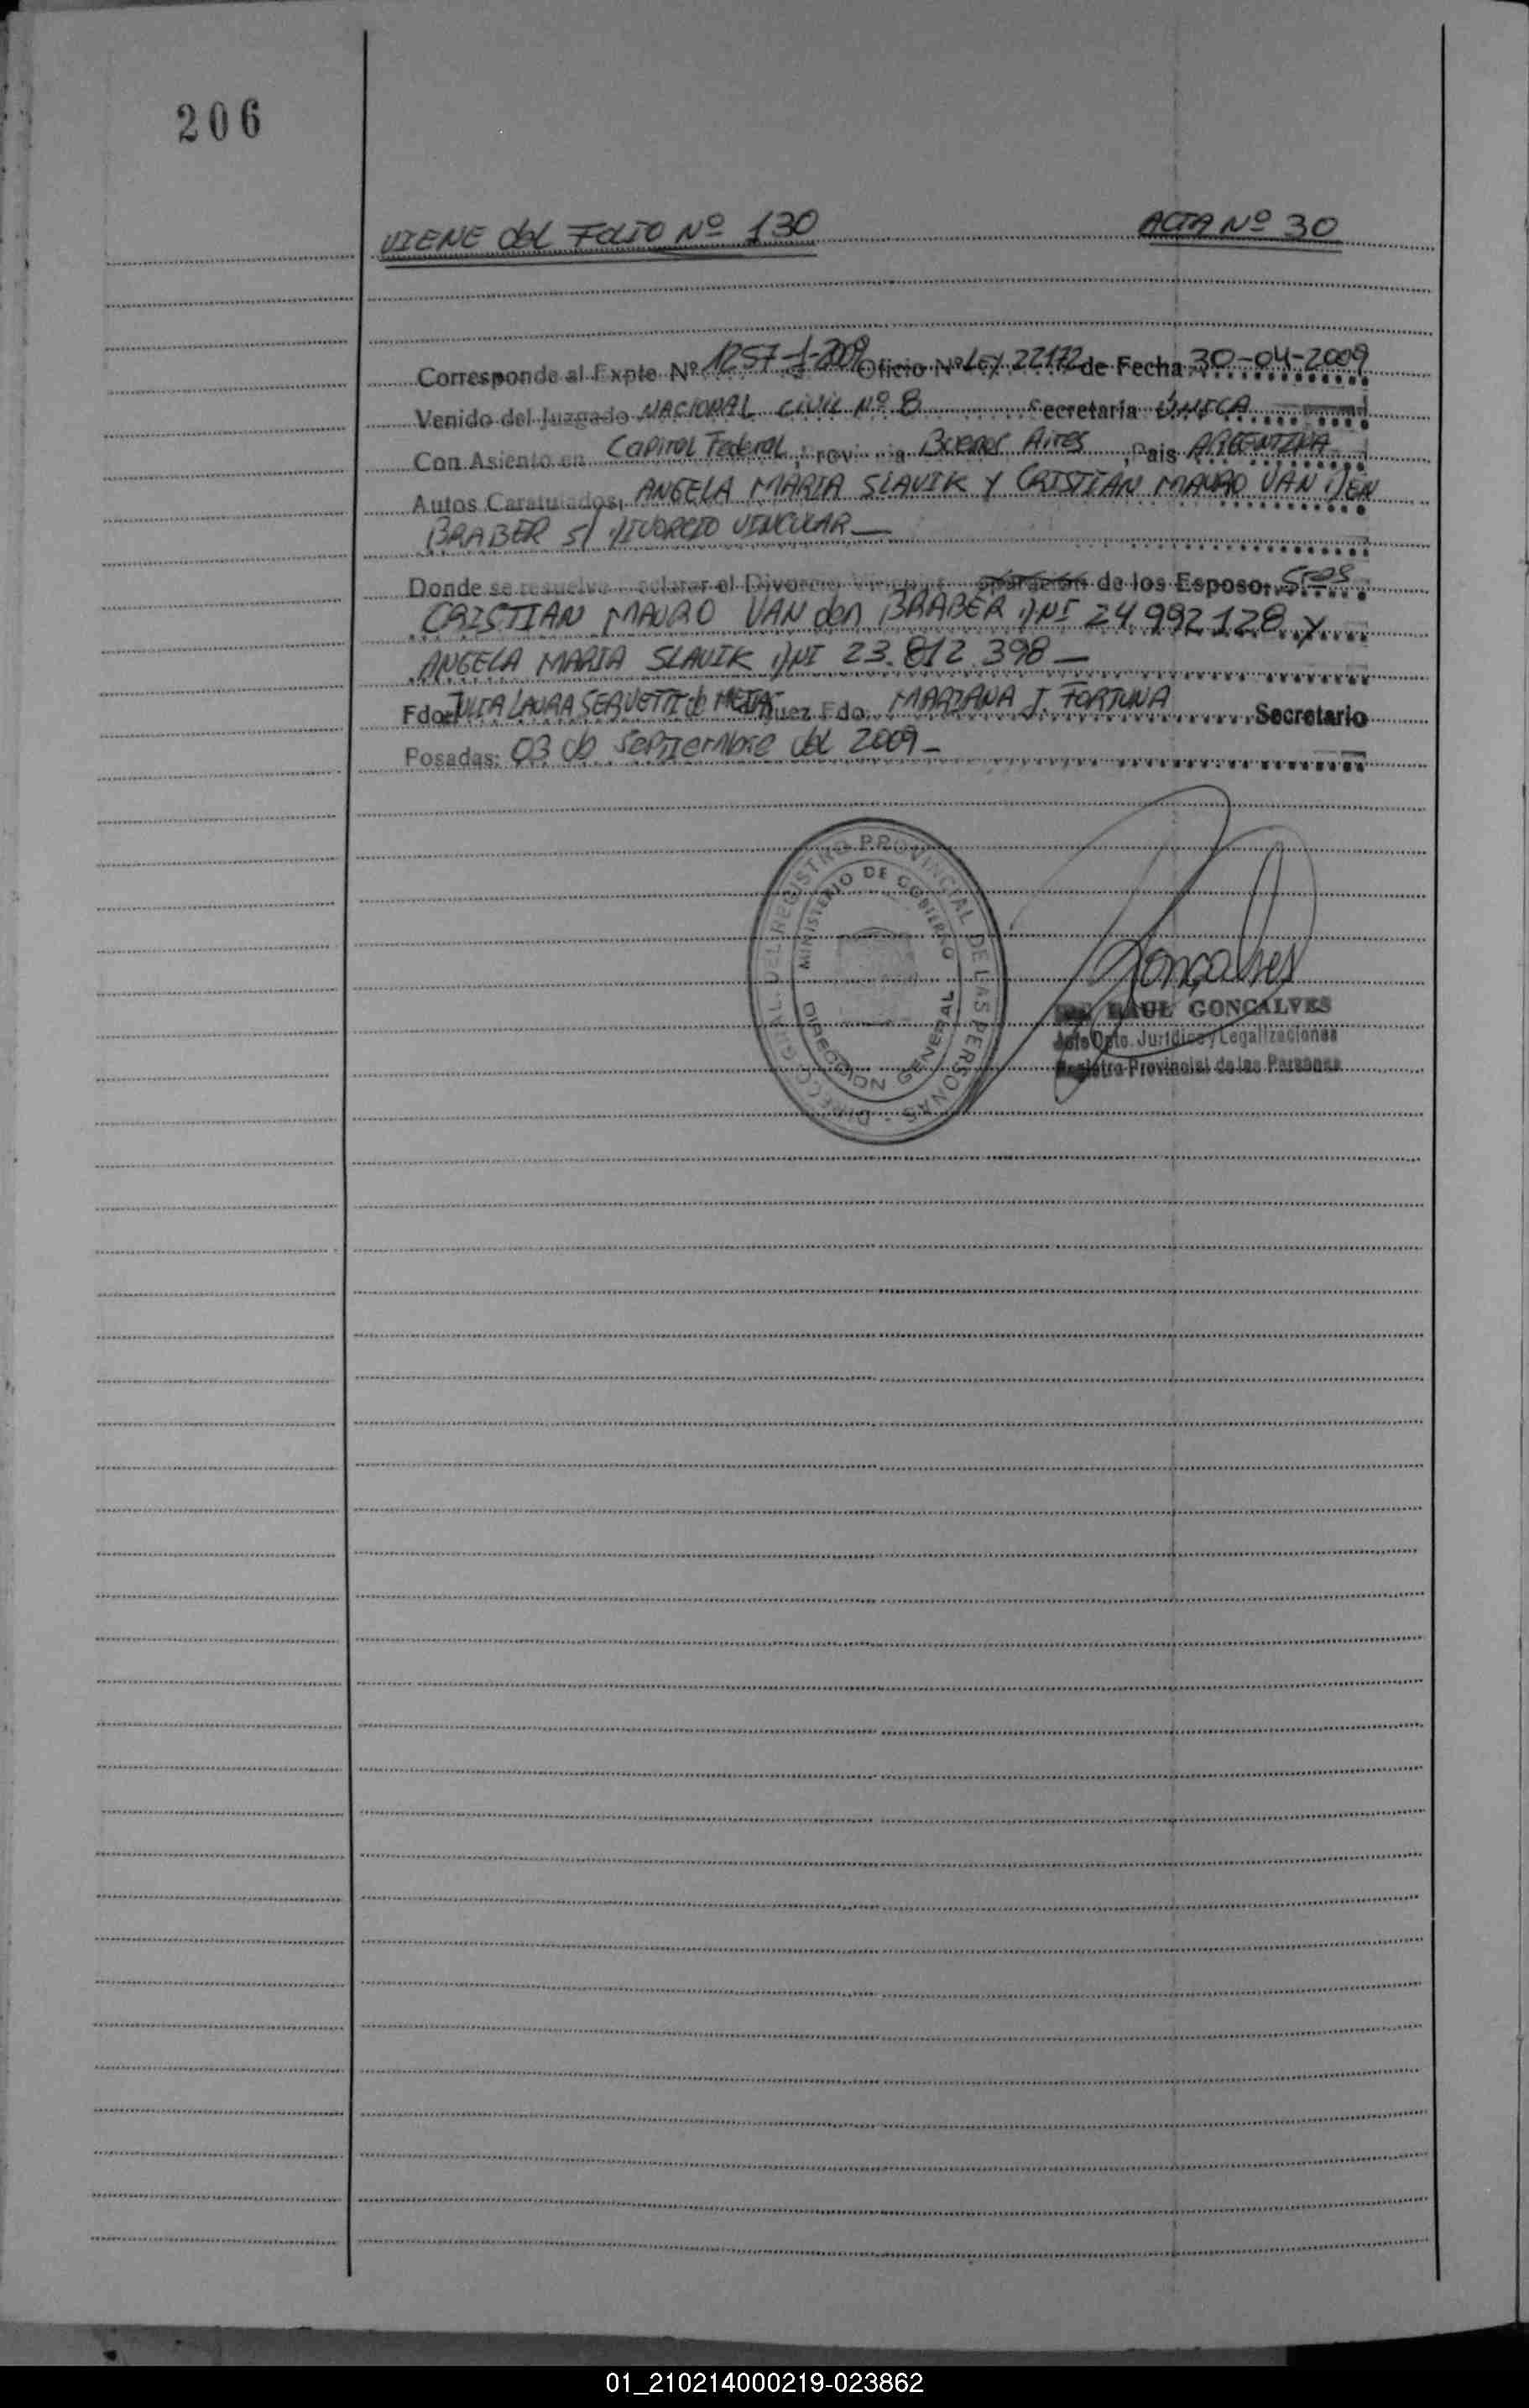 206
VIENE del FOLIO Nº 130 ACTA Nº 30
Corresponde al Expte Nº 1257-J-2009 Oficio Nº Ley 22172 de Fecha 30-04-2009
Venido del Juzgado NACIONAL CIVIL Nº 8 Secretaria ÚNICA
Con Asiento en Capital Federal, Provincia Buenos Aires, Pais ARGENTINA
Autos Caratulados, ANGELA MARIA SLAVIK Y CRISTIAN MAURO VAN DEN
BRABER S/ DIVORCIO VINCULAR
Donde se resuelve el Divorcio Vincular de los Esposos
CRISTIAN MAURO VAN den BRABER DNI 24.992.128 y
ANGELA MARIA SLAVIK DNI 23.812.398
Fdo: JULIA LAURA SERVETTI de MEJIA Juez Fdo. MARIANA J. FORTUNA Secretario
Posadas: 03 de Septiembre del 2009
DIRECC. GRAL. DEL REGISTRO PROVINCIAL DE LAS PERSONAS
MINISTERIO DE GOBIERNO
DIRECCION GENERAL
Gonçalves
RAUL GONCALVES
Jefe Dpto. Jurídico y Legalizaciones
Registro Provincial de las Personas
01_210214000219-023862